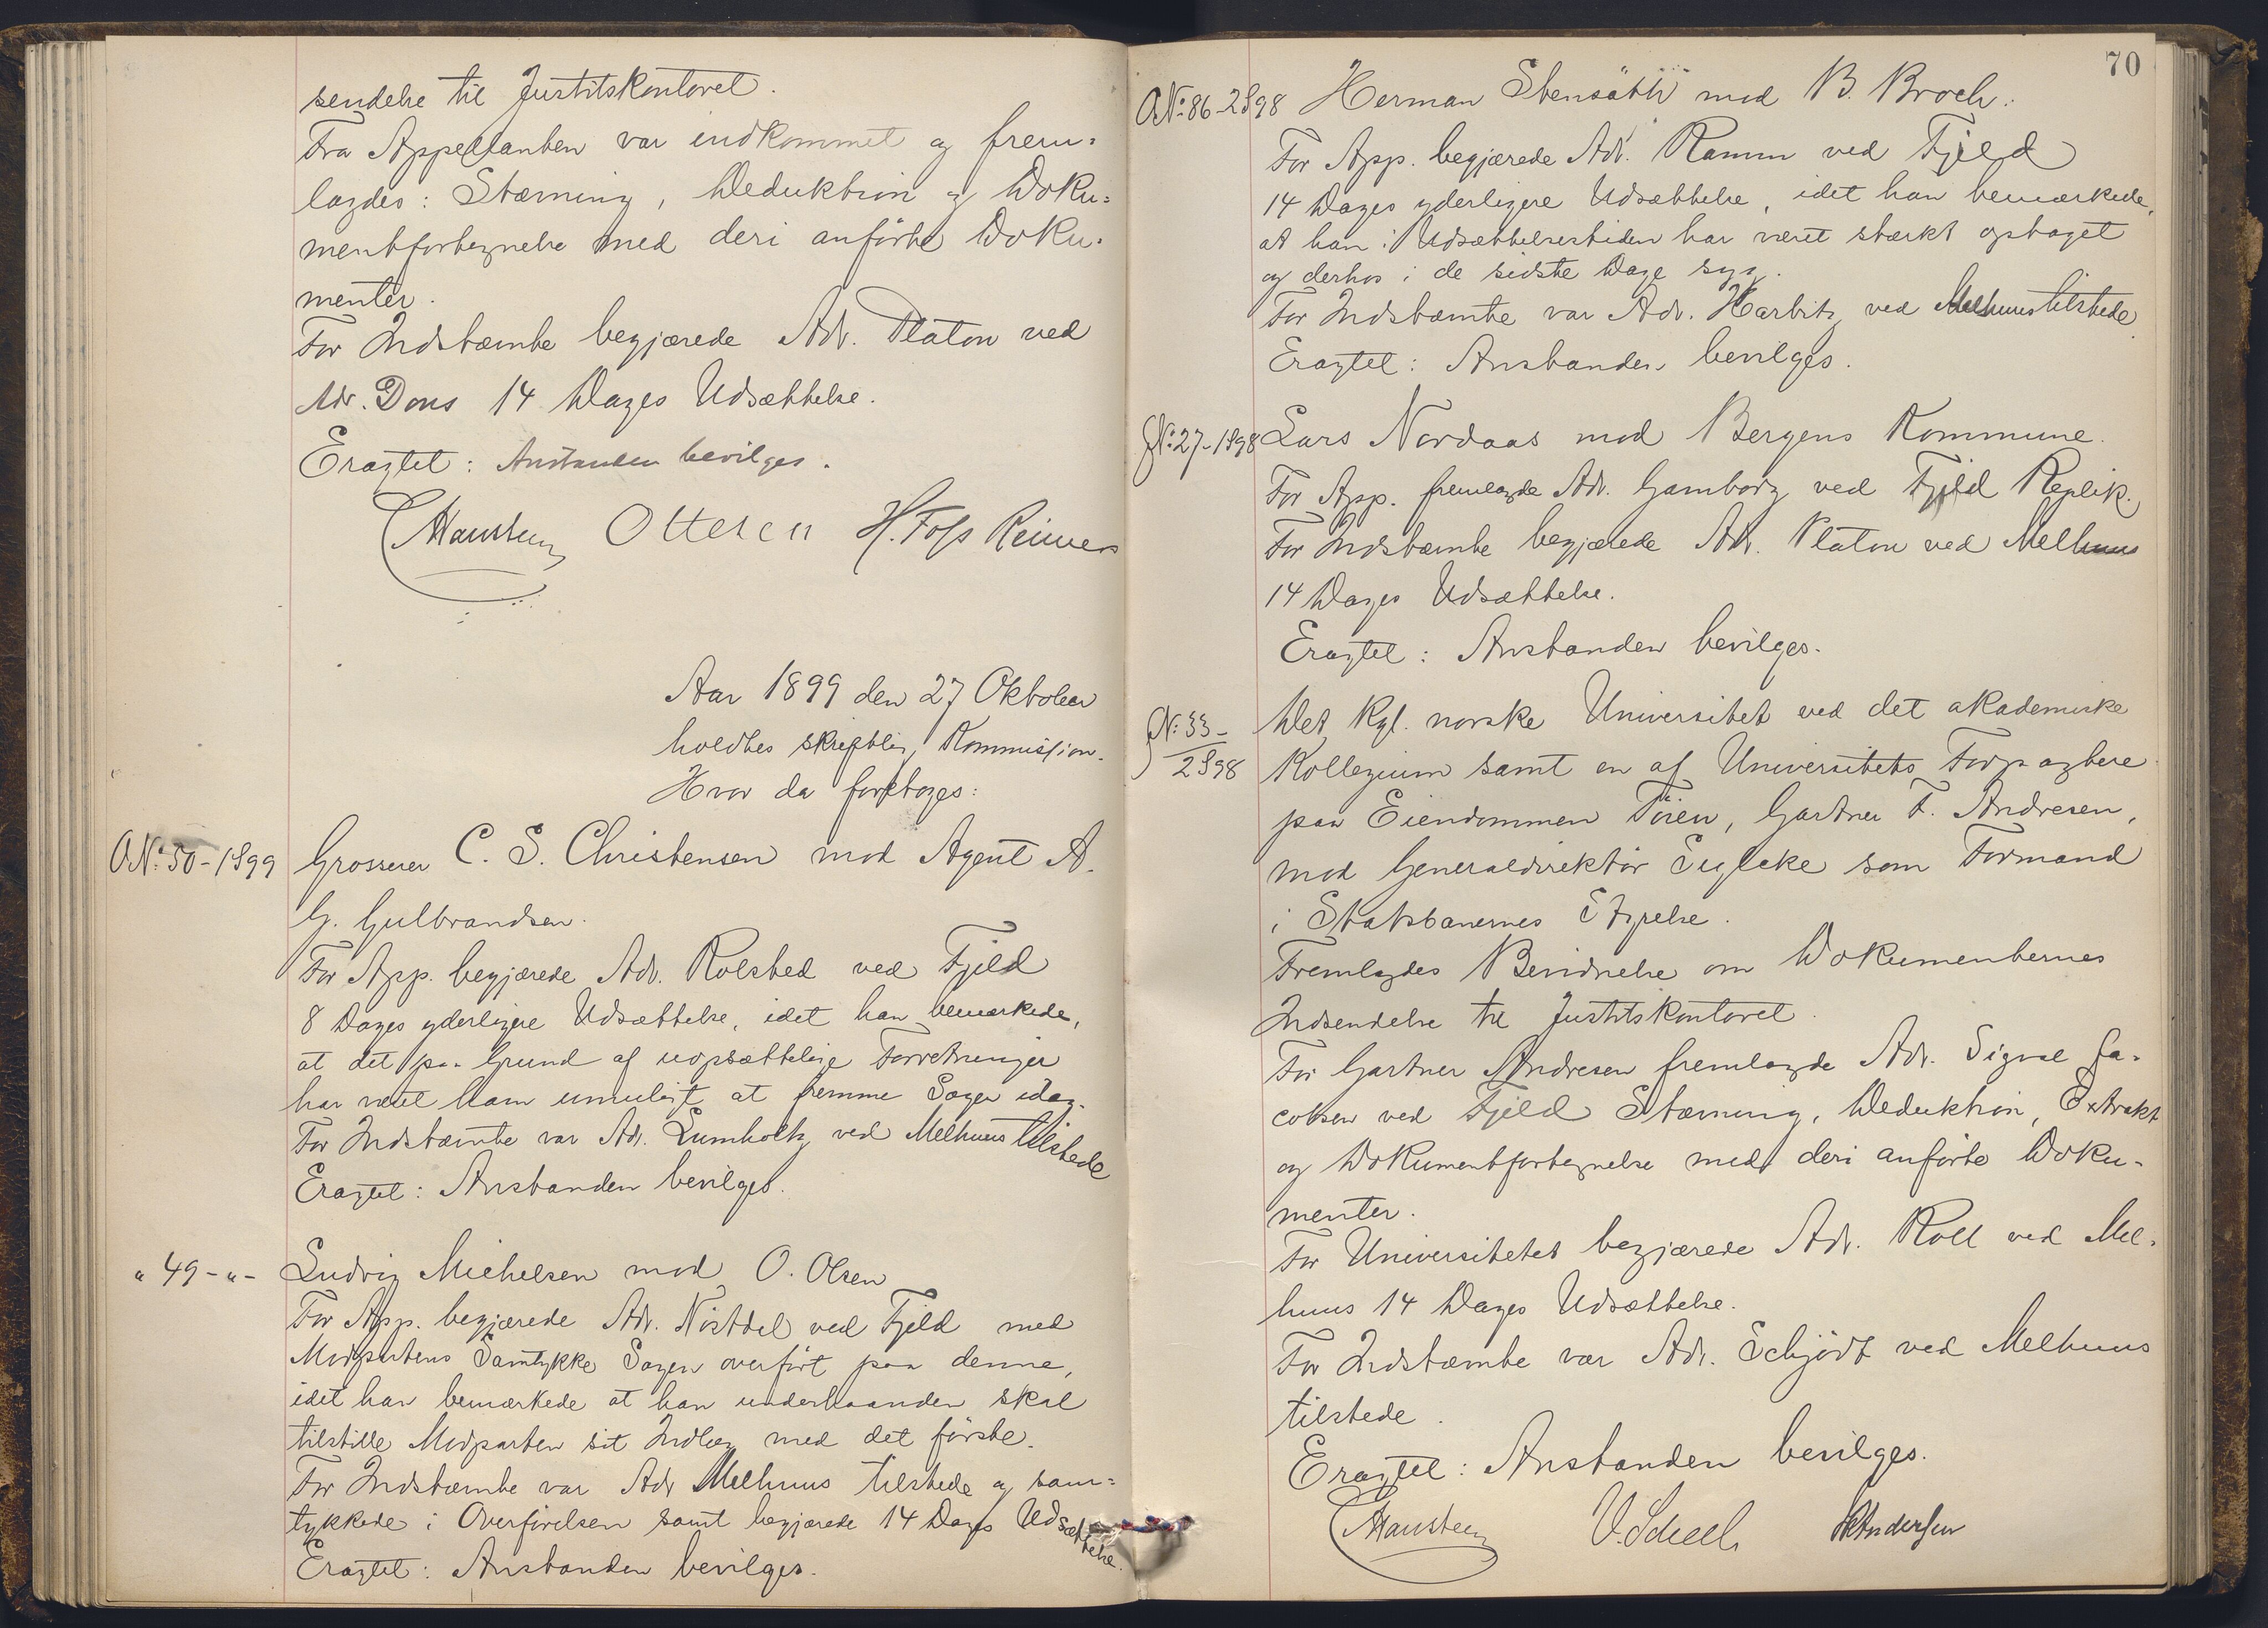 sendelse til Justitskontoret.
Fra Appellanten var indkommet og frem-
lagdes: Stævning, Deduktion og Doku-
mentfortegnelse med deri anførte Doku-
menter.
For Indstævnte begjærede Adv. Platon ved
Adv. Dons 14 Dages Udsættelse.
Eragtet: Anstanden bevilges.
Ottesen H. Foss Reimers
Aar 1899 den 27 Oktober
holdtes skriftlig Kommission.
Hvor da foretoges:
O.N: 50-1899 Grosserer C. S. Christensen mod Agent A.
G. Gulbrandsen.
For App. begjærede Adv. Rolsted ved Fjeld
8 Dages yderligere Udsættelse, idet han bemærkede,
at det paa Grund af uopsættelige Forretninger
har været ham umuligt at fremme Sagen idag.
For Indstævnte var Adv. Lumholtz ved Melhuus tilstede
Eragtet: Anstanden bevilges.
" 49-"- Ludvig Michelsen mod O. Olsen
For App. begjærede Adv. Nöstdal ved Fjeld med
Modpartens Samtykke Sagen overført paa denne,
idet han bemærkede at han underhaanden skal
tilstille Modparten sit Indlæg med det første.
For Indstævnte var Adv Melhuus tilstede og sam-
tykkede i Overførelsen samt begjærede 14 Dages Udsættelse.
Eragtet: Anstanden bevilges.
70
O.N: 86-2898 Herman Stensäth mod B. Broch.
For App. begjærede Adv. Ramm ved Fjeld
14 Dages yderligere Udsættelse, idet han bemærkede,
at han i Udsættelsestiden har været stærkt optaget
og derhos i de sidste Dage syg.
For Indstævnte var Adv. Harbitz ved Melhuus tilstede
Eragtet: Anstanden bevilges.
N: 27-1898 Lars Nordaas mod Bergens Kommune.
For App. fremlagde Adv. Gamborg ved Fjeld Replik.
For Indstævnte begjærede Adv. Platon ved Melhuus
14 Dages Udsættelse.
Eragtet: Anstanden bevilges.
N: 33-
2898
Det Kgl. norske Universitet ved det akademiske
Kollegium samt en af Universitets Forpagtere
paa Eiendommen Töien, Gartner F. Andresen,
mod Generaldirektör som Formand
i Statsbanernes Styrelse.
Fremlagdes Bevidnelse om Dokumenternes
Indsendelse til Justitskontoret.
For Gartner Andresen fremlagde Adv. Signal Ja-
cobsen ved Fjeld Stævning, Deduktion, Extrakt
og Dokumentfortegnelse med deri anførte Doku-
menter.
For Universitetet begjærede Adv. Roll ved Mel-
huus 14 Dages Udsættelse.
For Indstævnte var Adv. Schjödt ved Melhuus
tilstede.
Eragtet: Anstanden bevilges.
V. Scheel